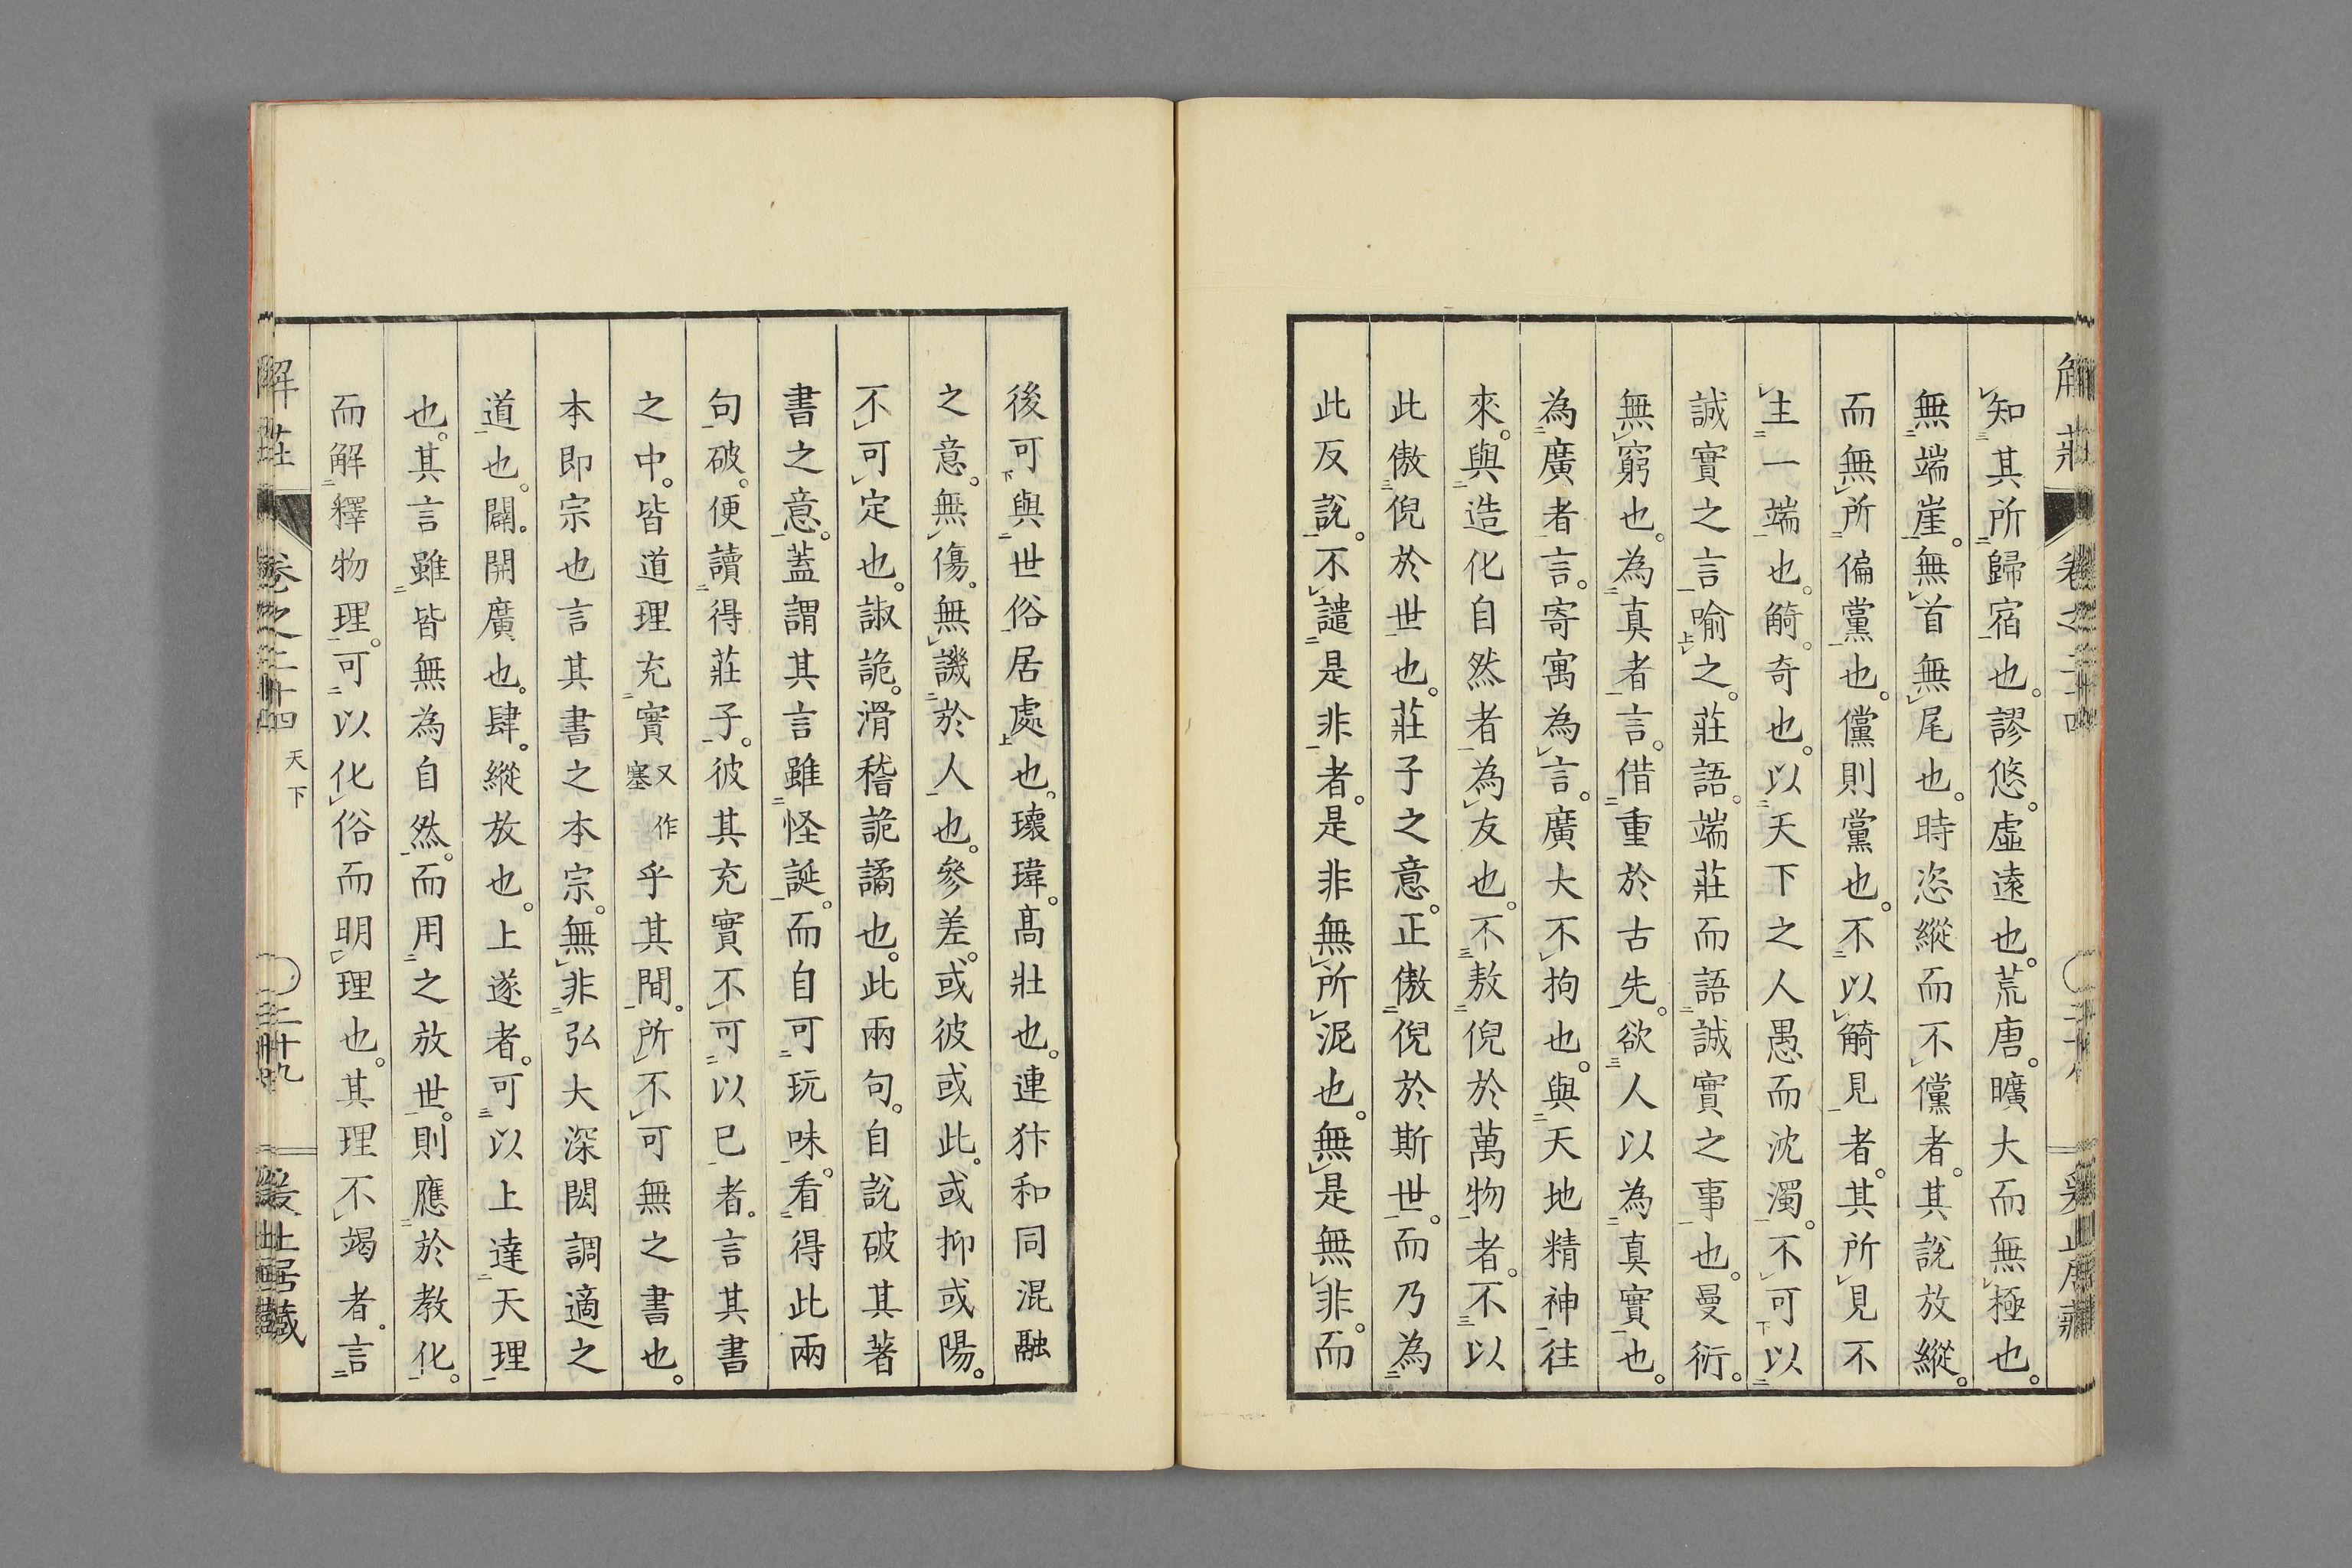 知其所歸宿也。謬悠。虛遠也。荒唐。曠大而無極也。
無端崖。無首無尾也。時恣縱而不儻者。其說放縱。
而無所偏黨也。儻則黨也。不以觭見者。其所見不
主一端也。觭。奇也。以天下之人愚而沈濁。不可以
誠實之言喻之。莊語。端莊而語誠實之事也。曼衍。
無窮也。為真者言。借重於古先。欲人以為真實也。
為廣者言。寄寓為言。廣大不拘也。與天地精神往
來。與造化自然者為友也。不敖倪於萬物者。不以
此傲倪於世也。莊子之意。正傲倪於斯世。而乃為
此反說。不譴是非者。是非無所泥也。無是無非。而
後可與世俗居處也。瓌瑋。高壯也。連犿和同混融
之意。無傷。無譏於人也。參差。或彼或此。或抑或陽。
不可定也。諔詭。滑稽詭譎也。此兩句。自說破其著
書之意。蓋謂其言雖怪誕。而自可玩味。看得此兩
句破。便讀得莊子。彼其充實不可以已者。言其書
之中。皆道理充實又作塞乎其間。所不可無之書也。
本即宗也言其書之本宗。無非弘大深閎調適之
道也。闢。開廣也。肆。縱放也。上遂者。可以上達天理
也。其言雖皆無為自然。而用之放世。則應於教化。
而解釋物理。可以化俗而明理也。其理不竭者。言
解莊 卷之二十四 天下 二十九 嚴止居藏